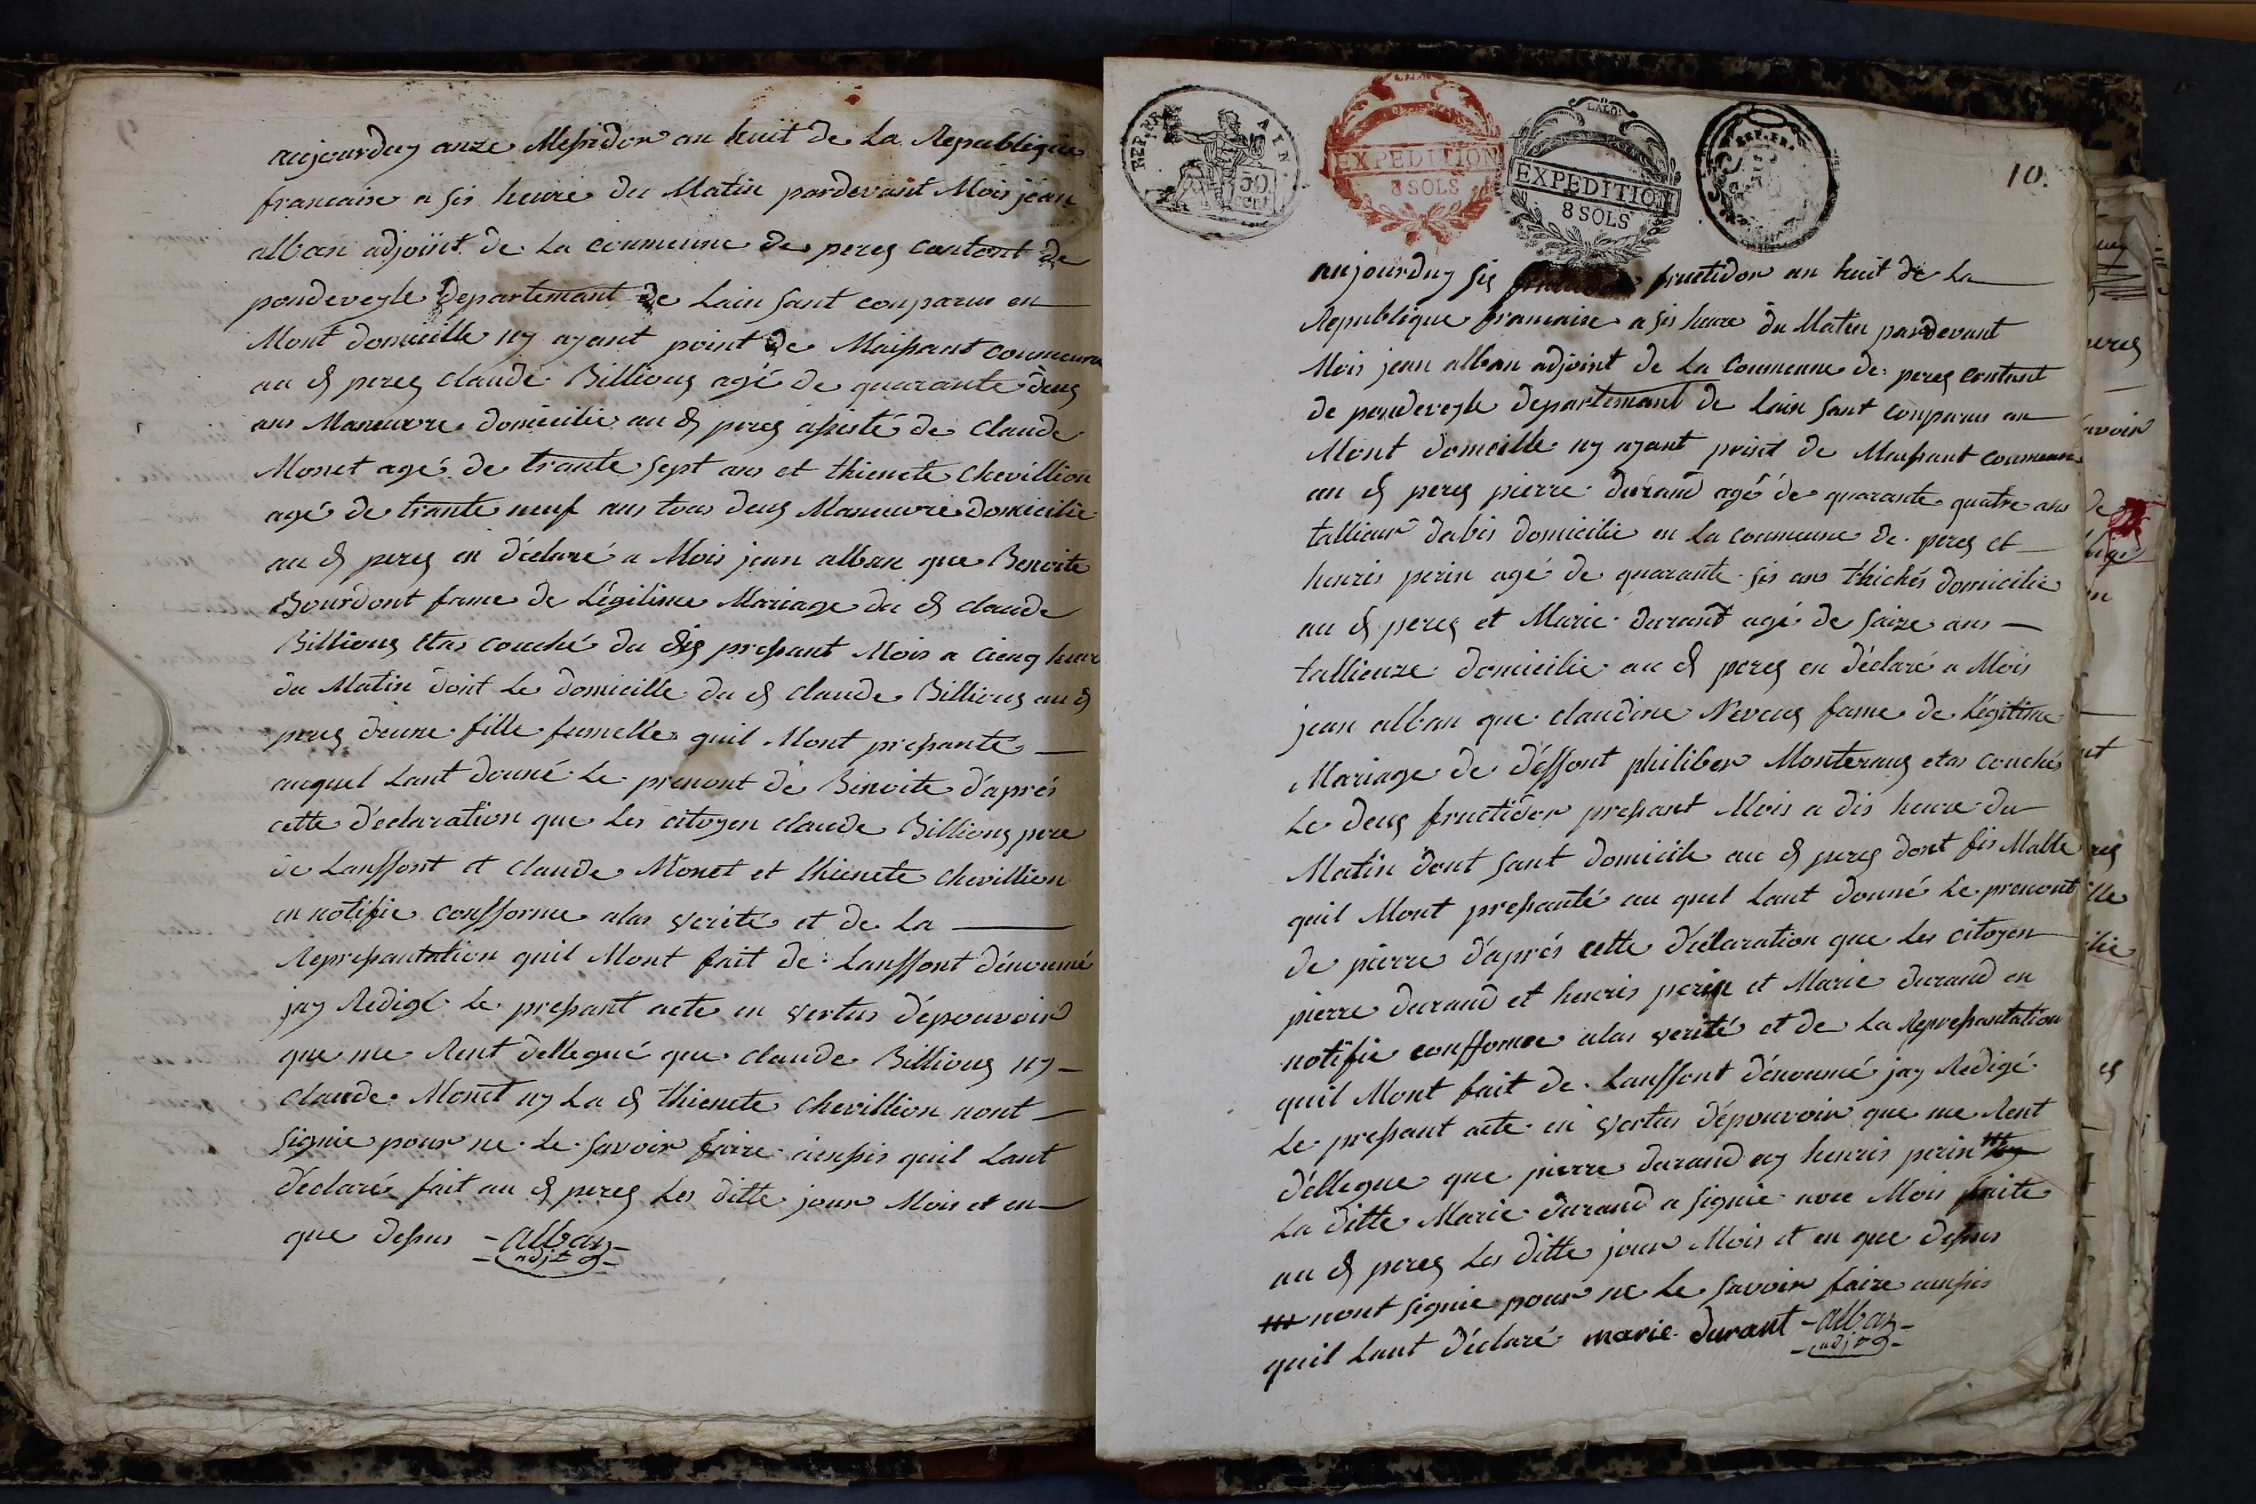 aujourduy onze Messidor an huit de La Republique
francaise a sis heure du Matin pardevant Mois jean
alban adjoiit de La coumeune de peres cantont de
pondeveyle departemant de Lain sant conparus en
Mont domicille ny ayant point de Maissant coumeune
au d peres Claude Billious agé de quarante deus
ans Maneuvre domicilie au d peres assisté de Claude
Monet agé de trante sept ans et thienete Chevillion
agé de trante neuf ans tous deus Maneuvre domicilie
au d peres en déclaré a Mois jean alban que Benoite
Bourdont fame de Légitime Mariage du d claude
Billious etas couché du dis pressant Mois a cienq heure
du Matin dont Le domicille du d Claude Billious au d
peres deune fille fumelle quil Mont pressanté
auquel Lant douné Le prenont de Benoite d'aprés
cette déclaration que Les citoyen claude Billious pere
de Lanffont et claude Monet et thienete chevillien
en notifie confforme alas verité et de La
Repressantation quil Mont fait de Lanffont dénoumé
jay Redigé Le pressant acte en vertus dépouvoir
que me Sent dellegué que claude Billious ny
claude Monet ny La d thienete chevillion nont
signie pour ne Le savoir faire ainssis quil Lant
déclaré fait au d peres Les ditte jour Mois et en
que dessus - alban -
adjt
REP. FRA
AIN.
50
CENT
EXPEDITION
8 SOLS
LA LOI
EXPEDITION
8 SOLS
10.
aujourduy sis fructidor an huit de La
Republique francaise a sis heure du Matin pardevant
Mois jean alban adjoint de La Coumeune de peres contant
de pondeveyle departemant de Lain sant conparus an
Mont domicille ny ayant point de Maissant coumeune
au d peres pierre durand agé de quarante quatre ans
tallieur dabis domicilie en La coumeune de peres et
henris perin agé de quarante sis ans thichés domicilie
au d peres et Marie durant agé de saize ans
tallieuze domicilie au d peres en déclaré a Mois
jean alban que claudine Neveus fame de Légitime
Mariage de déffont philiber Monteraus etas couché
Le deus fructidor pressant Mois a dis heure du
Matin dont sant domicile au d peres dont fis Malle
quil Mont pressanté au quel Lant douné Le prenont
de pierre d'aprés cette déclaration que Les citoyen
pierre durand et henris perin et Marie durand en
notifie confforme alas verité et de La Repressantation
quil Mont fait de Lanffont dénoumé jay Redigé
Le pressant acte en vertus dépouvoir que me Sent
déllegue que pierre durand ny henris perin
La ditte Marie durand a signie avec Mois faite
au d peres Les ditte jour Mois et en que dessus
nont signie pour ne Le savoir faire ainssis
quil Lant déclaré marie durant - alban -
adj